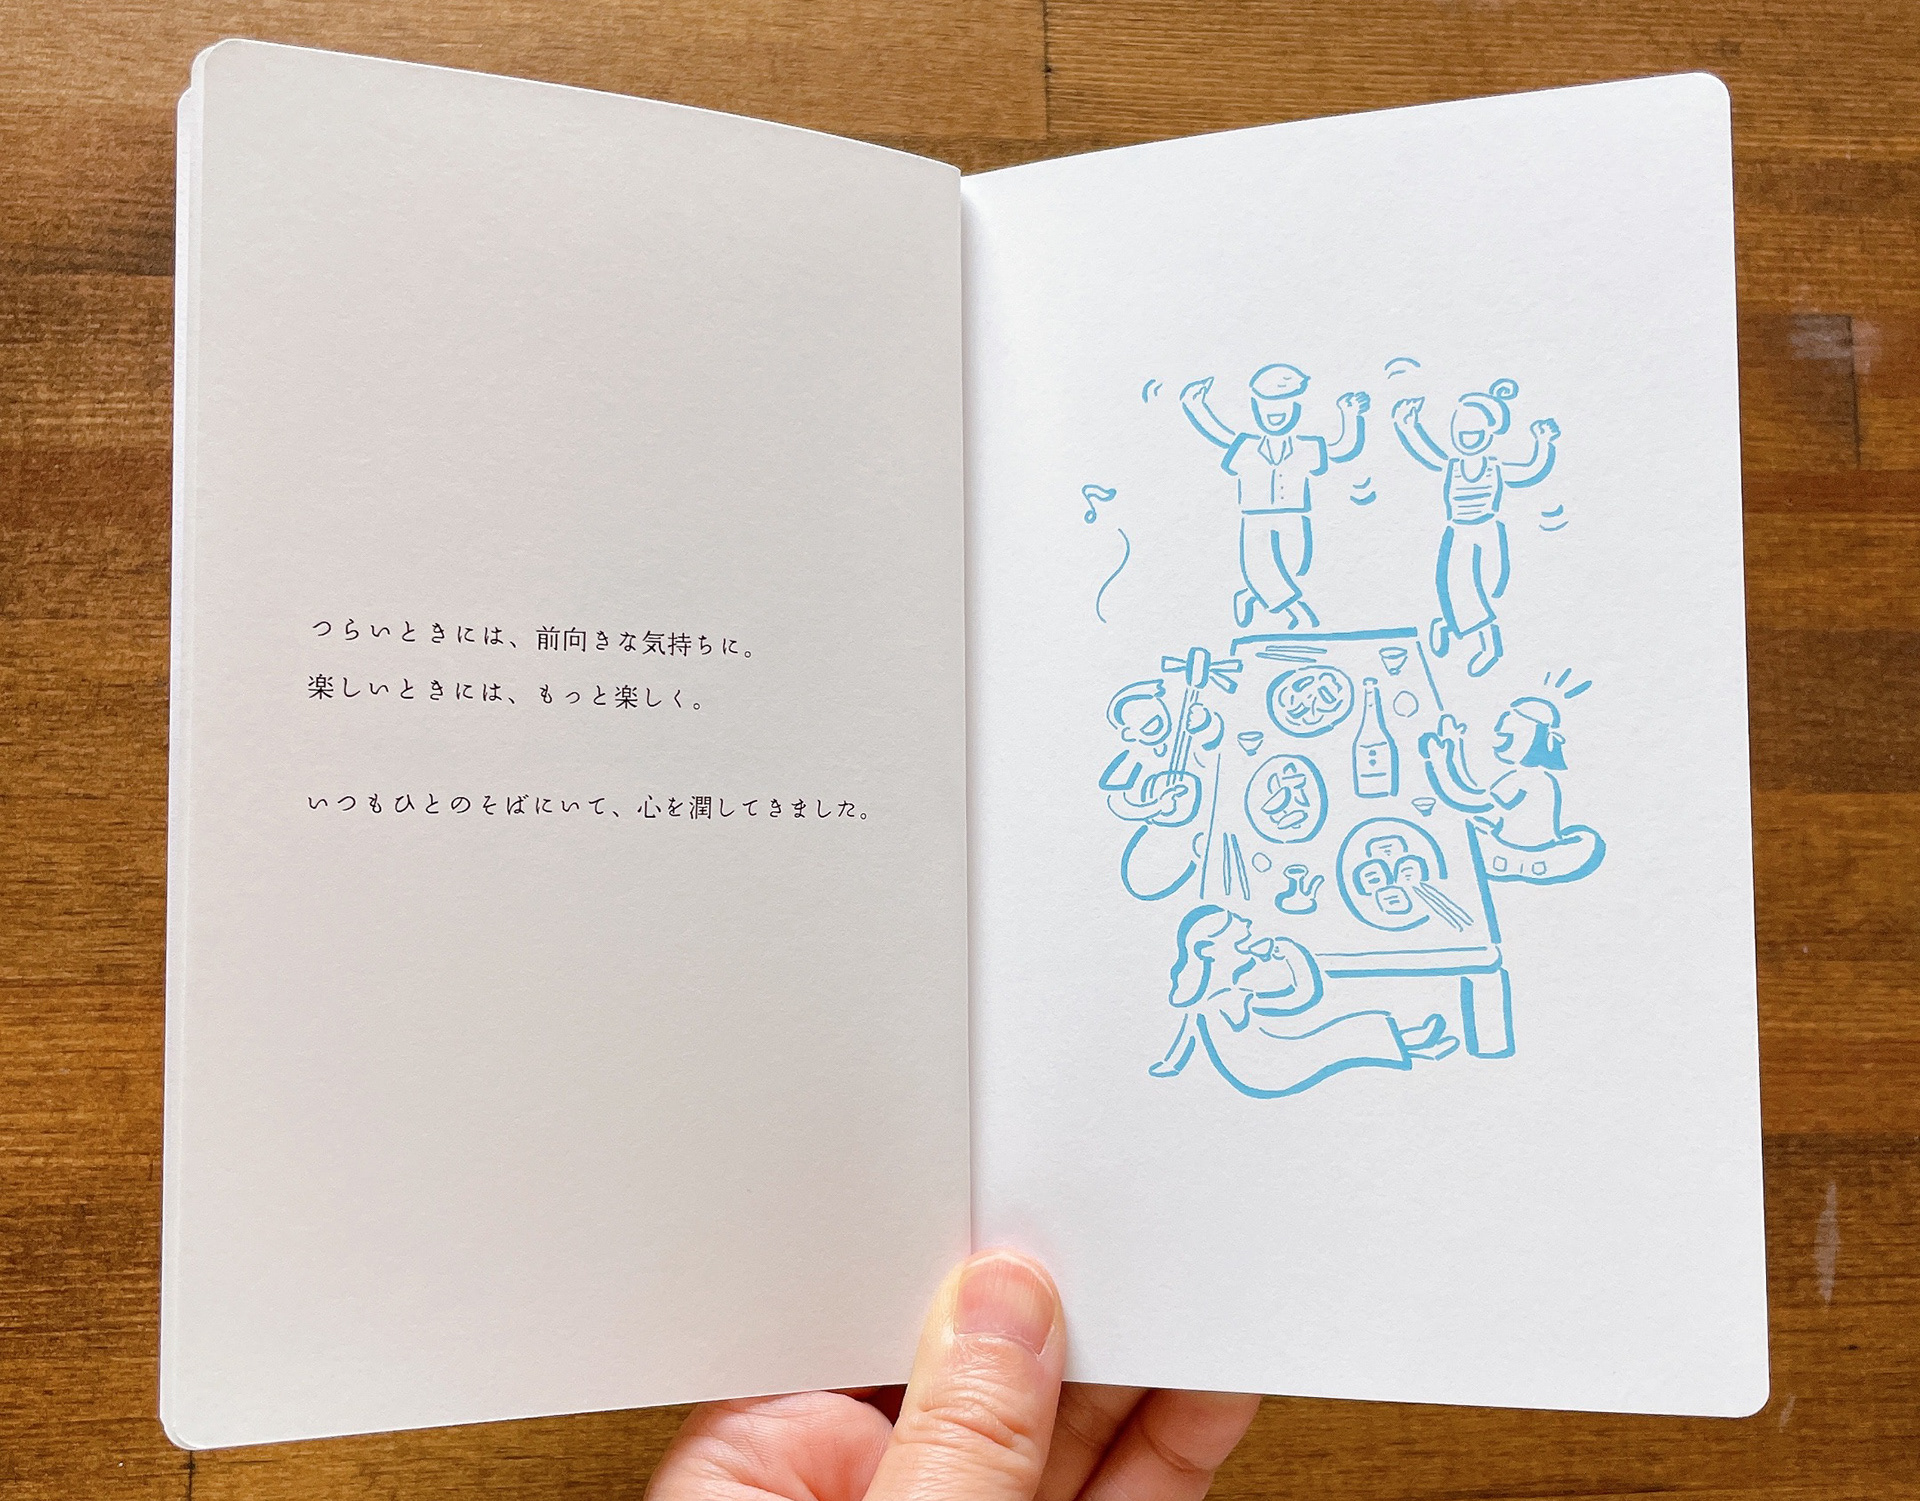 つらいときには、前向きな気持ちに。
楽しいときには、もっと楽しく。
いつもひとのそばにいて、心を潤してきました。